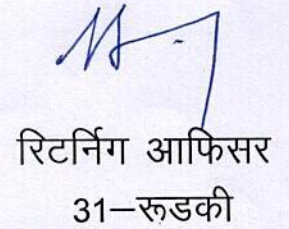 रिटर्निग आफिसर
31–रूडकी